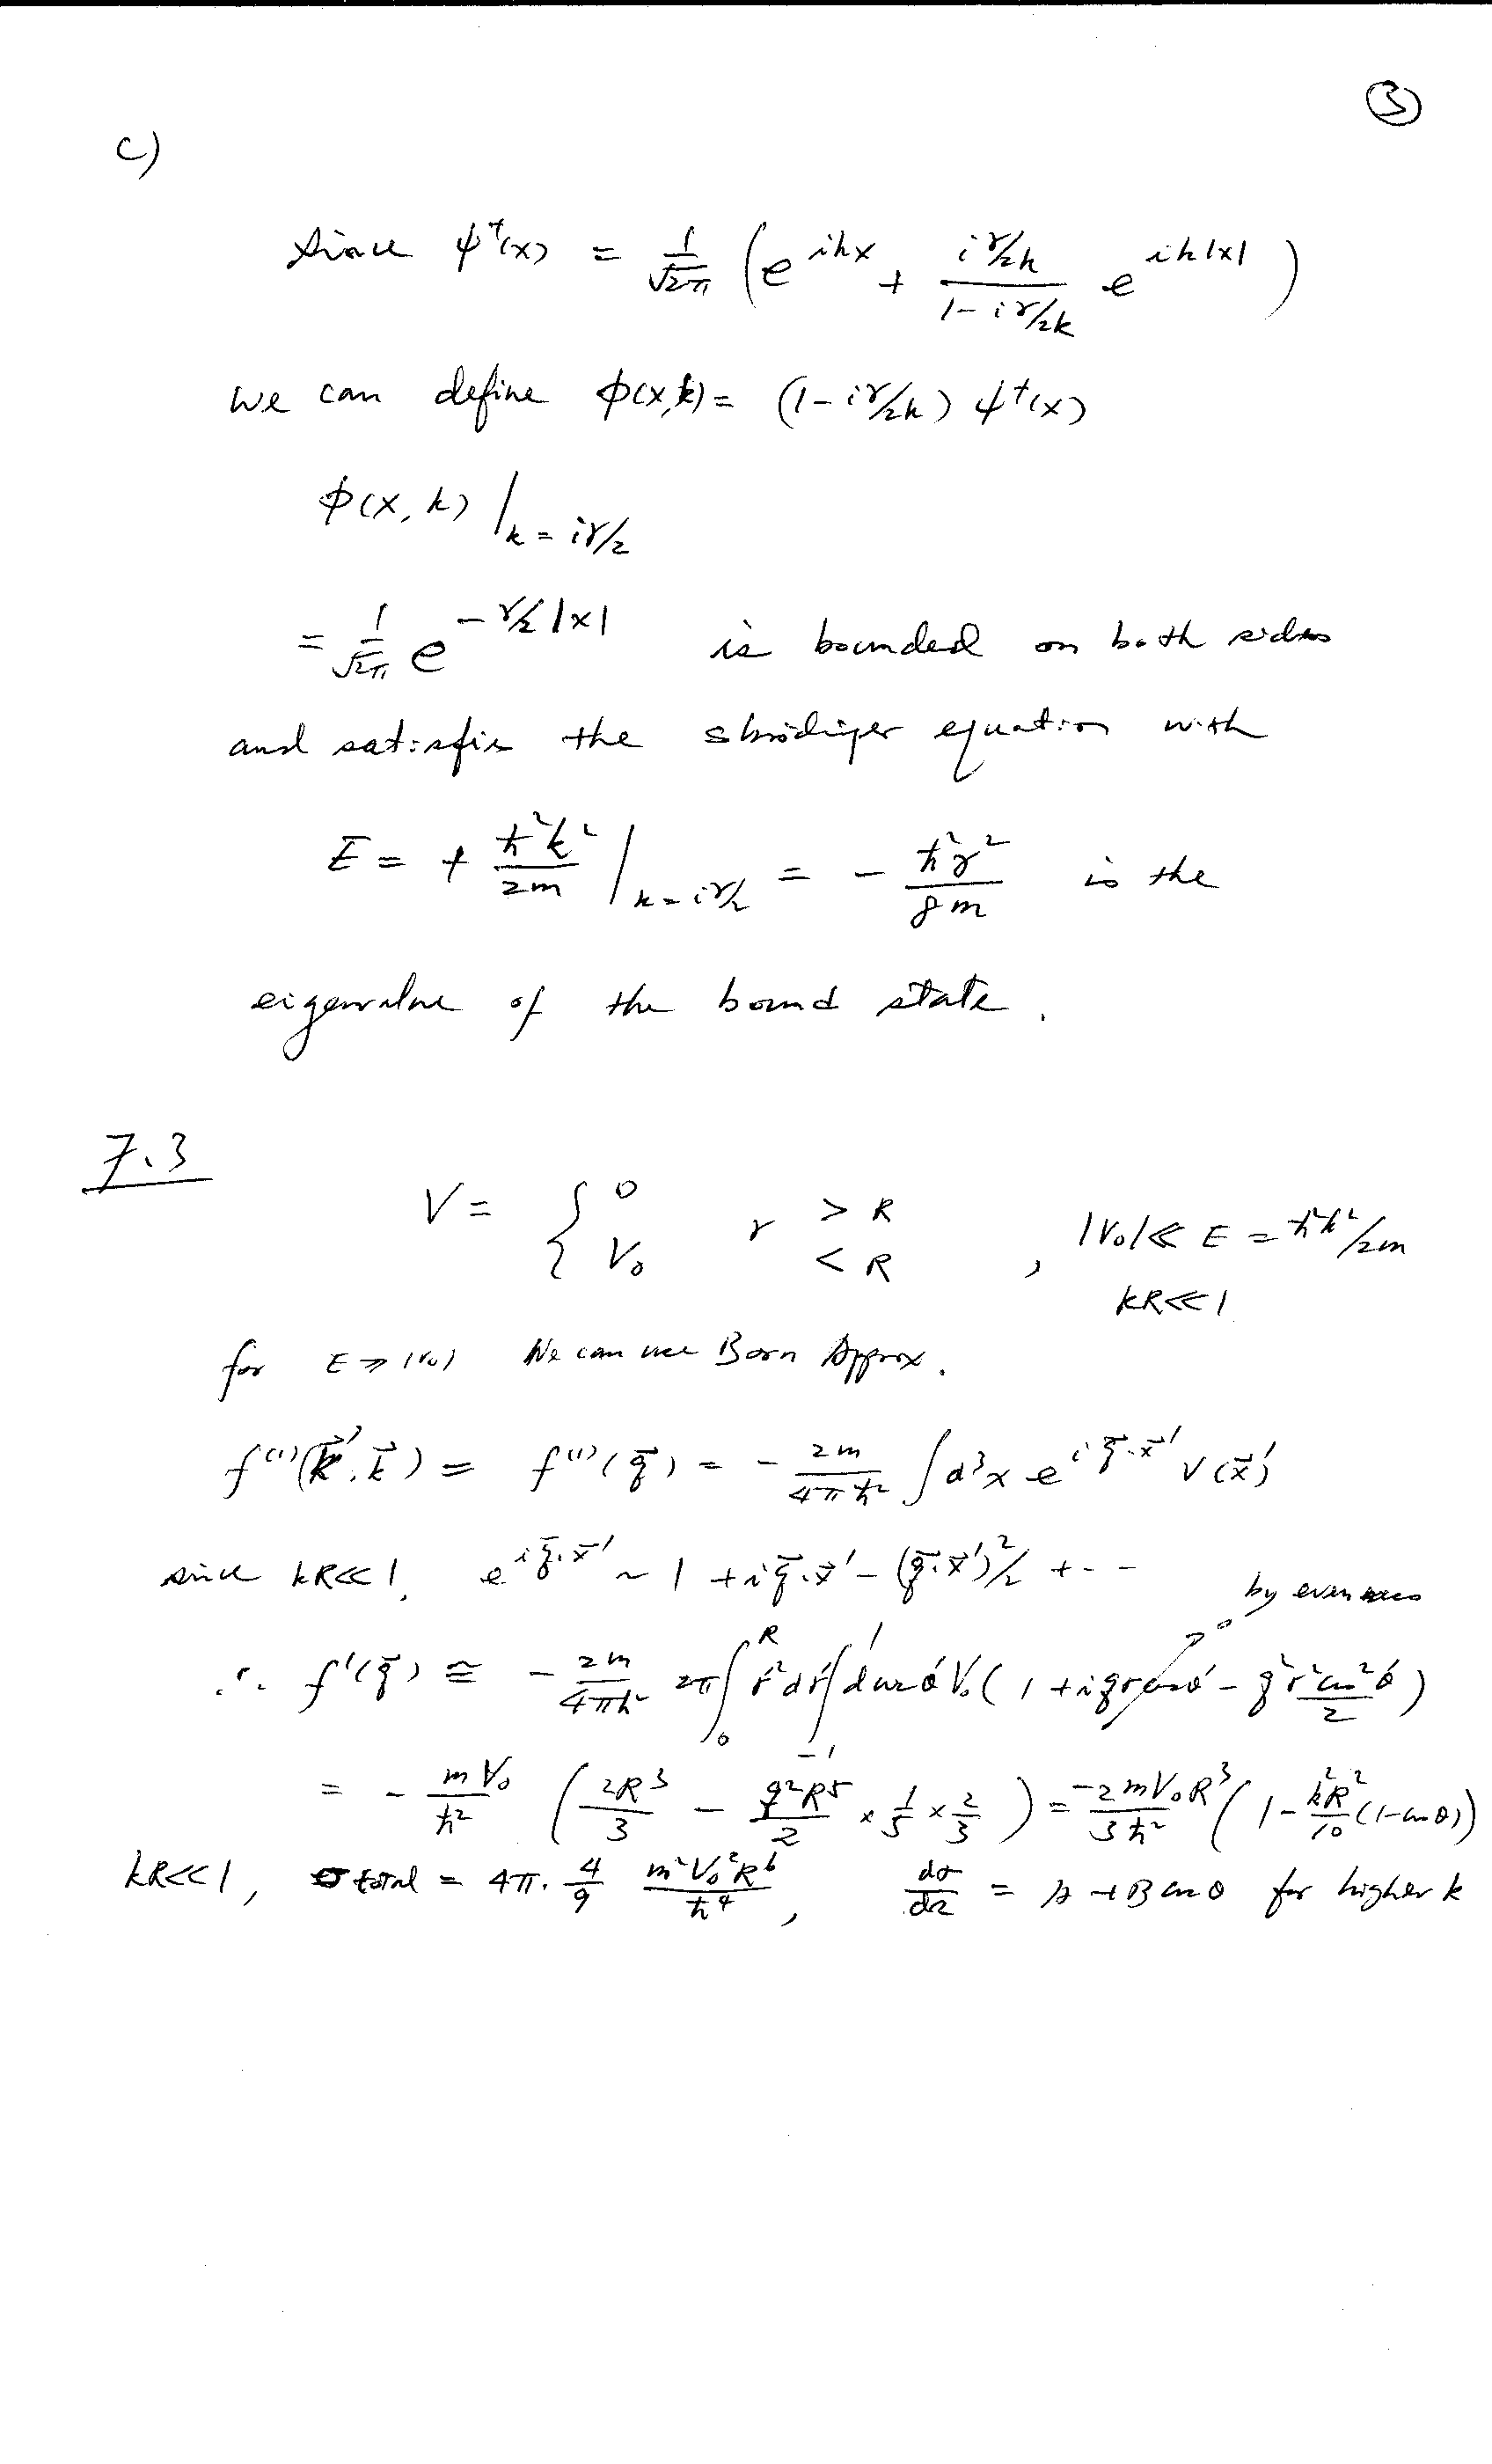 ③
c)
Since ψ⁺(x) = 1/√2π (e^{ikx} + (iγ/2k)/(1 - iγ/2k) e^{ik|x|})
we can define φ(x,k) = (1 - iγ/2k) ψ⁺(x)
φ(x, k) |_{k = iγ/2}
= 1/√2π e^{-γ/2 |x|} is bounded on both sides
and satisfies the shrödiger equation with
E = + ħ²k²/2m |_{k = iγ/2} = - ħ²γ²/8m is the
eigenvalue of the bound state.
7.3
V = { 0 r > R
V₀ < R , |V₀| ≪ E = ħ²k²/2m
kR ≪ 1
for E ≫ |V₀| We can use Born Approx.
f⁽¹⁾(k⃗', k⃗) = f⁽¹⁾(q⃗) = - 2m/4πħ² ∫d³x e^{i q⃗·x⃗'} V(x⃗')
since kR≪1, e^{i q⃗·x⃗'} ~ 1 + i q⃗·x⃗' - (q⃗·x⃗')²/2 + ---
by evenness
∴ f'(q⃗) ≅ - 2m/4πħ² 2π ∫₀^R r'²dr' ∫₋₁^1 dcosθ' V₀ ( 1 + iqr'cosθ' - q²r'²cos²θ'/2 ) → 0
= - mV₀/ħ² ( 2R³/3 - q²R⁵/2 × 1/5 × 2/3 ) = -2mV₀R³/3ħ² ( 1 - k²R²/10 (1-cosθ))
kR≪1, σ total = 4π · 4/9 m²V₀²R⁶/ħ⁴ , dσ/dΩ = A + B cosθ for higher k